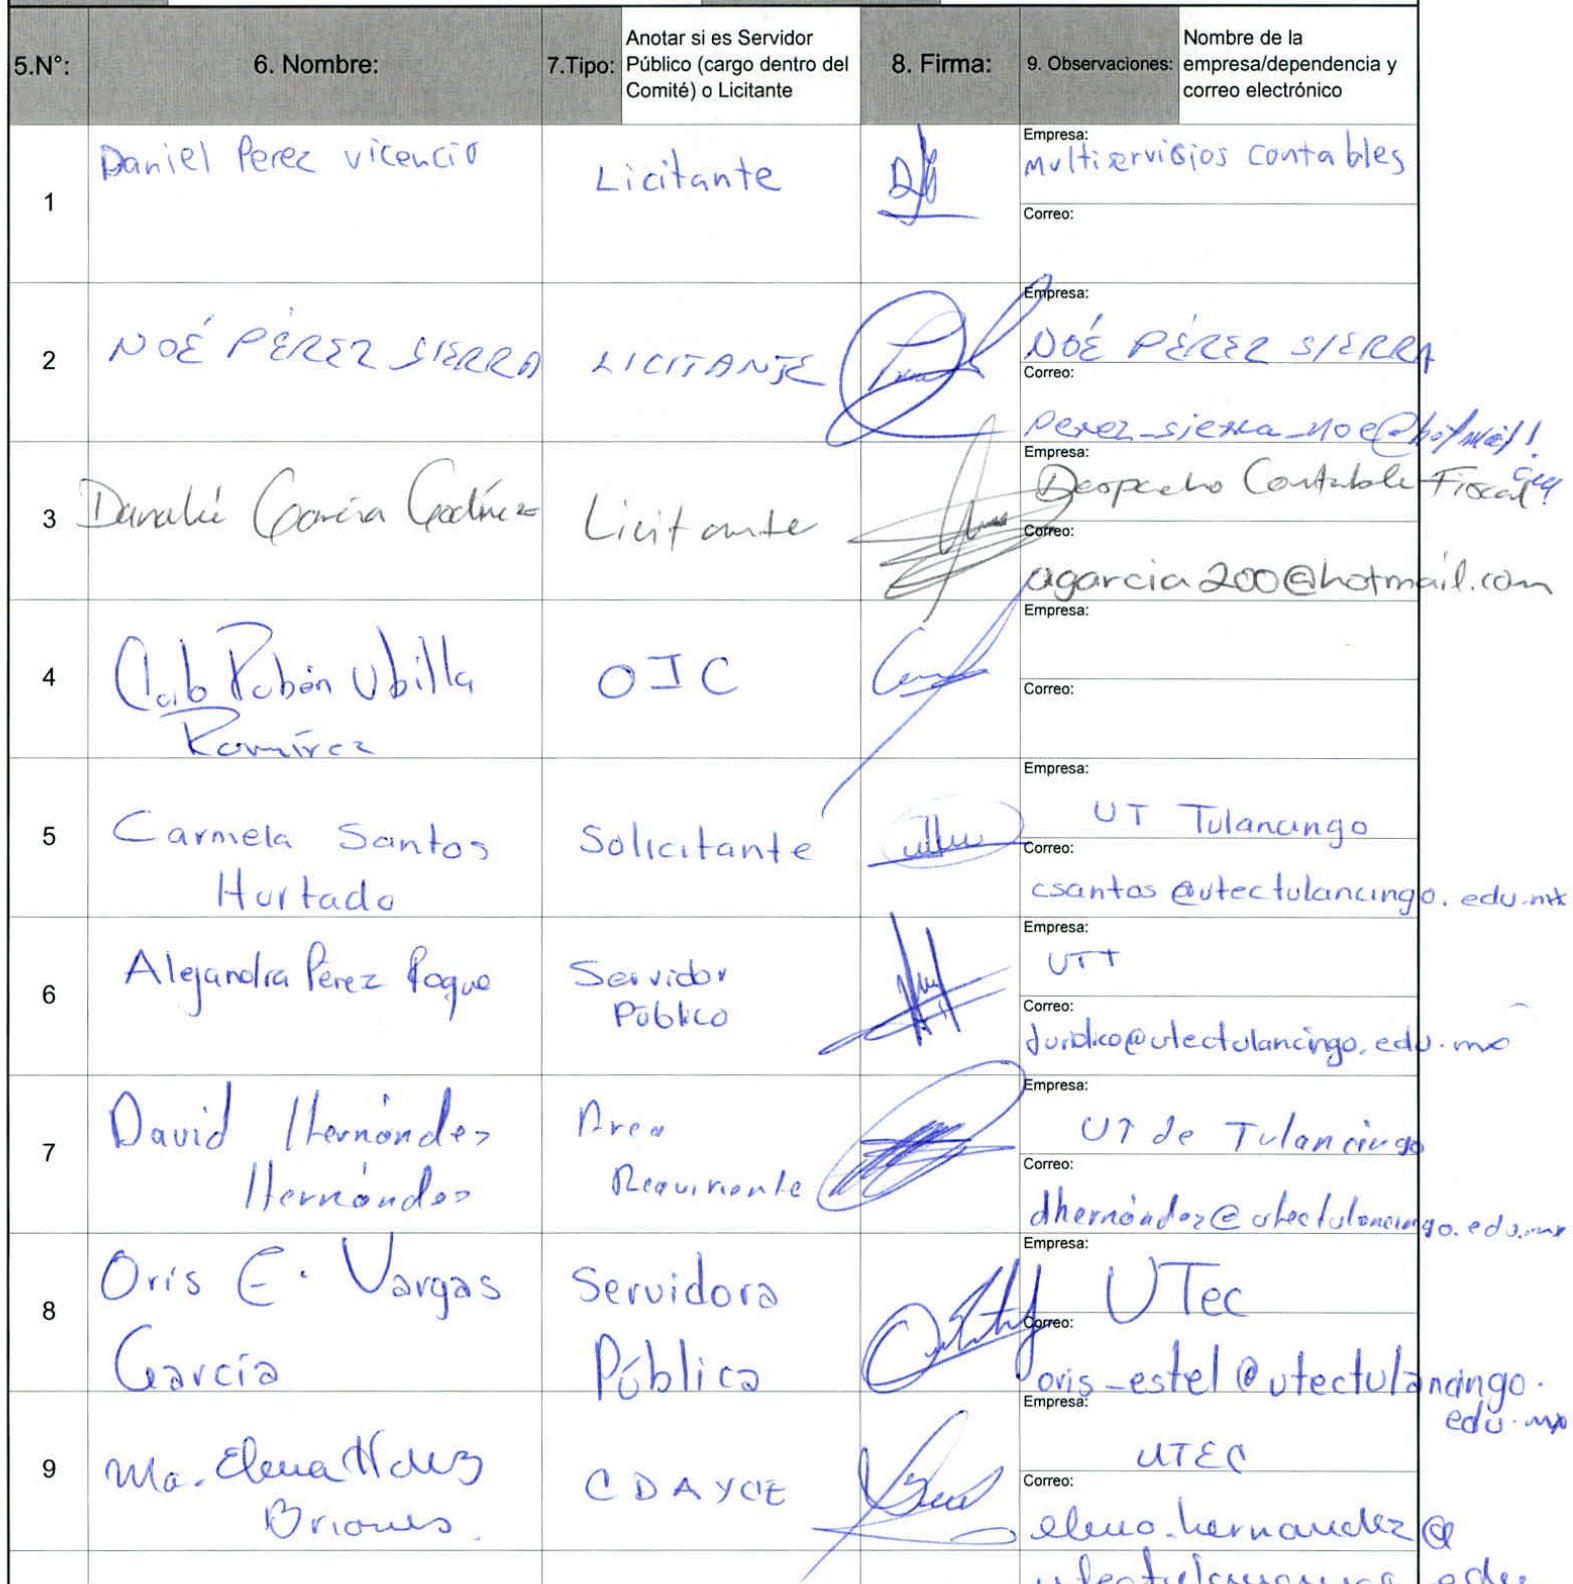 5.N°:
6. Nombre:
7.Tipo:
Anotar si es Servidor
Público (cargo dentro del
Comité) o Licitante
8. Firma:
9. Observaciones:
Nombre de la
empresa/dependencia y
correo electrónico
1
Daniel Perez vicencio
Licitante
Empresa:
Multiservisios contables
Correo:
2
NOÉ PÉREZ SIERRA
LICITANTE
Empresa:
NOÉ PÉREZ SIERRA
Correo:
perez_sierra_noe@hotmail.
com
3
García Godínez
Licitante
Empresa:
Despacho Contable Fiscal
Correo:
agarcia200@hotmail.com
4
Rubén Ubilla
Ramírez
OIC
Empresa:
Correo:
5
Carmela Santos
Hurtado
Solicitante
Empresa:
UT Tulancingo
Correo:
csantos@utectulancingo.edu.mx
6
Alejandra Pérez Roque
Servidor
Público
Empresa:
UTT
Correo:
Juridico@utectulancingo.edu.mx
7
David Hernández
Hernández
Area
Requirente
Empresa:
UT de Tulancingo
Correo:
dhernández@utectulancingo.edu.mx
8
Oris E. Vargas
García
Servidora
Pública
Empresa:
UTec
Correo:
oris_estel@utectulancingo.
edu.mx
9
Ma. Elena Hdez
Briones.
CDAYCE
Empresa:
UTEC
Correo:
elena.hernandez@
utectulancingo.edu.